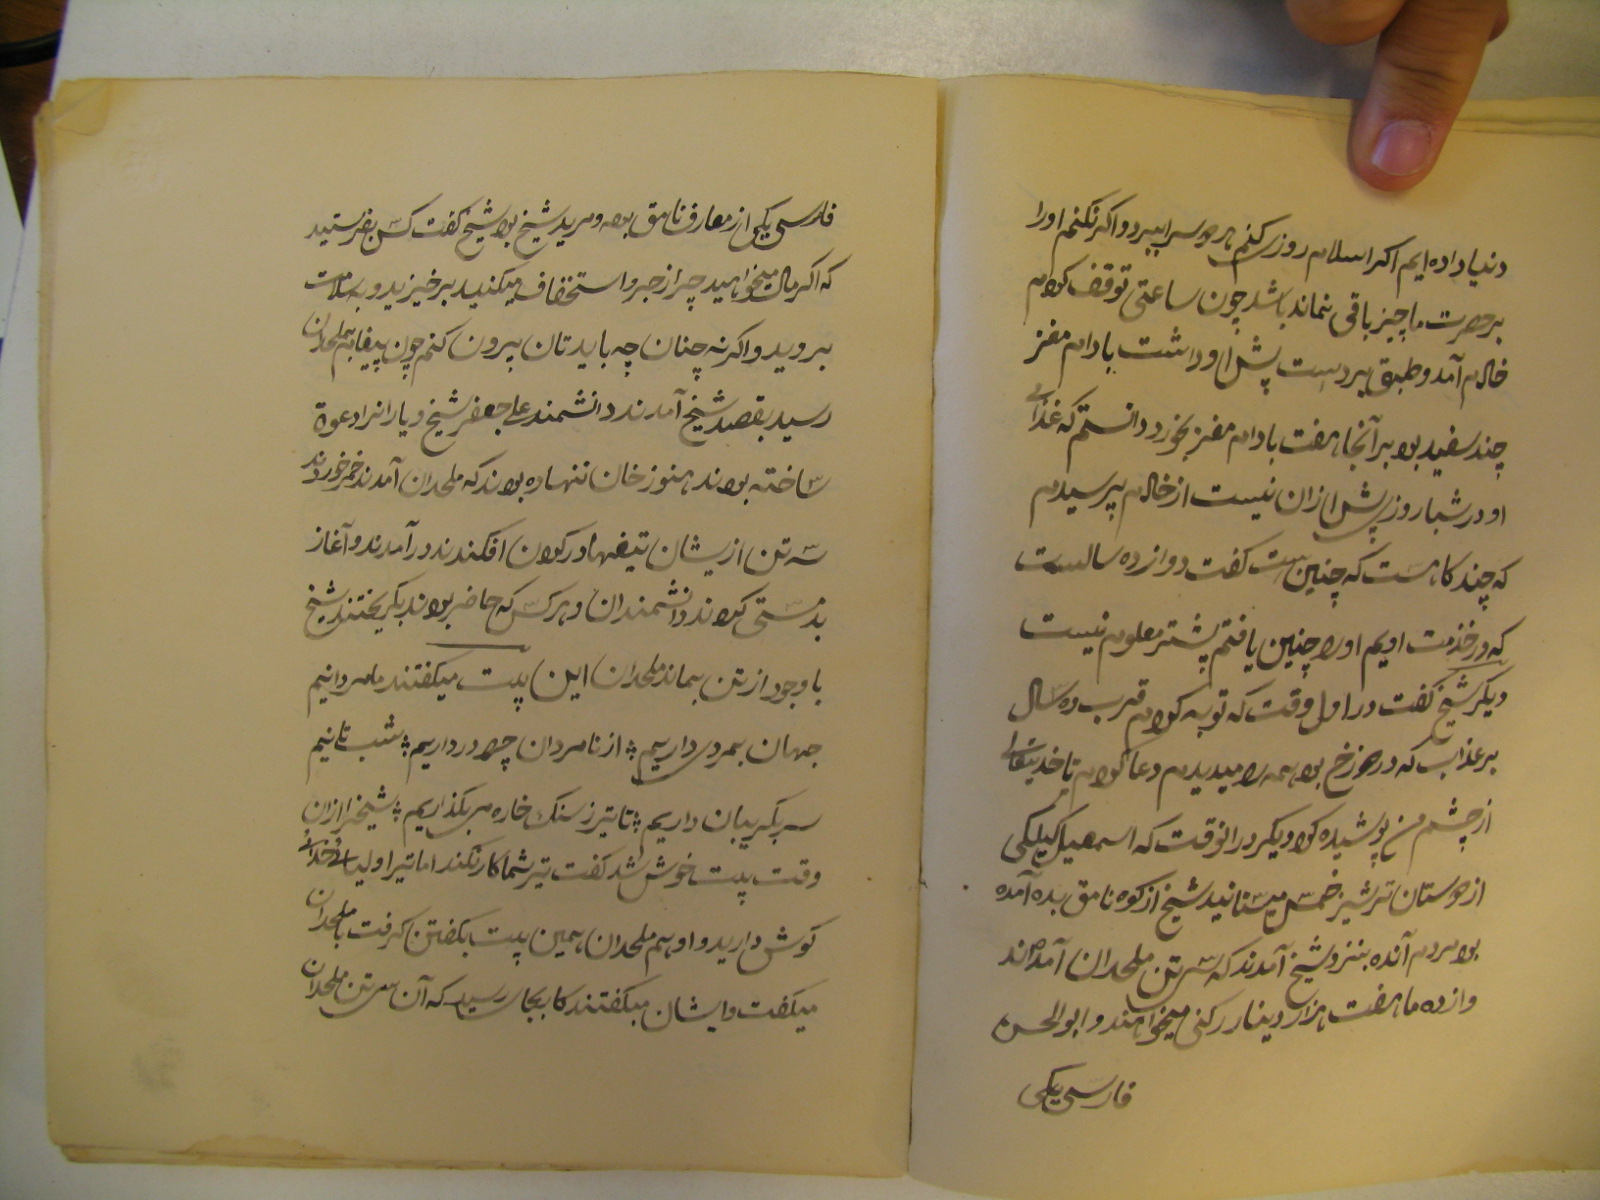 دنیا داده‌ایم اکر اسلام روزی کنم هر دو سرا ببرد و اکر نکنم اورا
بر حضرت ما چیز باقی نماند باشد چون ساعتی توقف کردم
خادم آمد و طبق بر دست پش او داشت بادام مغز
چند سفید بود بر آنجا هفت بادام مغز بخورد دانستم که غذای
او در شبا روزی پش ازان نیست از خادم پرسیدم
که چند کاهست که چنین است کفت دوازده سالست
که در خذمت اویم اورا چنین یافتم پشتر معلوم نیست
دیکر شیخ کفت در اول وقت که توبه کردم قرب ده سال
بر عذاب که در دوزخ بود همه را میدیدم دعا کردم تا خدایتعالی
از چشم من پوشیده کرد و دیکر در انوقت که اسمعیل کیلکی
از دوستان ترشیز خمس میستانید شیخ از کوه نامق بده آمده
بود مردم آنده بنزد شیخ آمدند که سی تن ملحدان آمده‌اند
و از ده ما هفت هزار دینار رکنی میخواهند و ابو الحسن
فارسی یکی
فارسی یکی از معارف نامق بود و مرید شیخ بود شیخ کفت کس بفرستید
که اکر مال میخواهید چرا از جبر و استخفاف میکنید برخیزید و بسلامت
بروید و اکر نه چنان چه بایدتان بیرون کنم چون پیغام بملحدان
رسید بقصد شیخ آمدند دانشمند علی جعفر شیخ و یارانرا دعوة
ساخته بودند هنوز خان ننهاده بودند که ملحدان آمدند خمر خورده
سه تن ازیشان تیغها در کردن افکندند در آمدند و آغاز
بد مستی کردند دانشمندان و هر کس که حاضر بودند بکریختند شیخ
با وجود از تن بماند ملحدان این بیت میکفتند ما مردانیم
جهان بمردی داریم از نامردان چرا درد داریم شب تا نیم
سر بکریبان داریم تا تیر ز سنک خاره می بکذاریم شیخرا ازان
وقت بیت خوش شد کفت تیر شما کار نکند اما تیر اولیاء خدای
کوش دارید و او هم ملحدان همین بیت بکفتن کرفت با ملحدان
میکفت و ایشان میکفتند کار بجای رسید که آن سی تن ملحدان